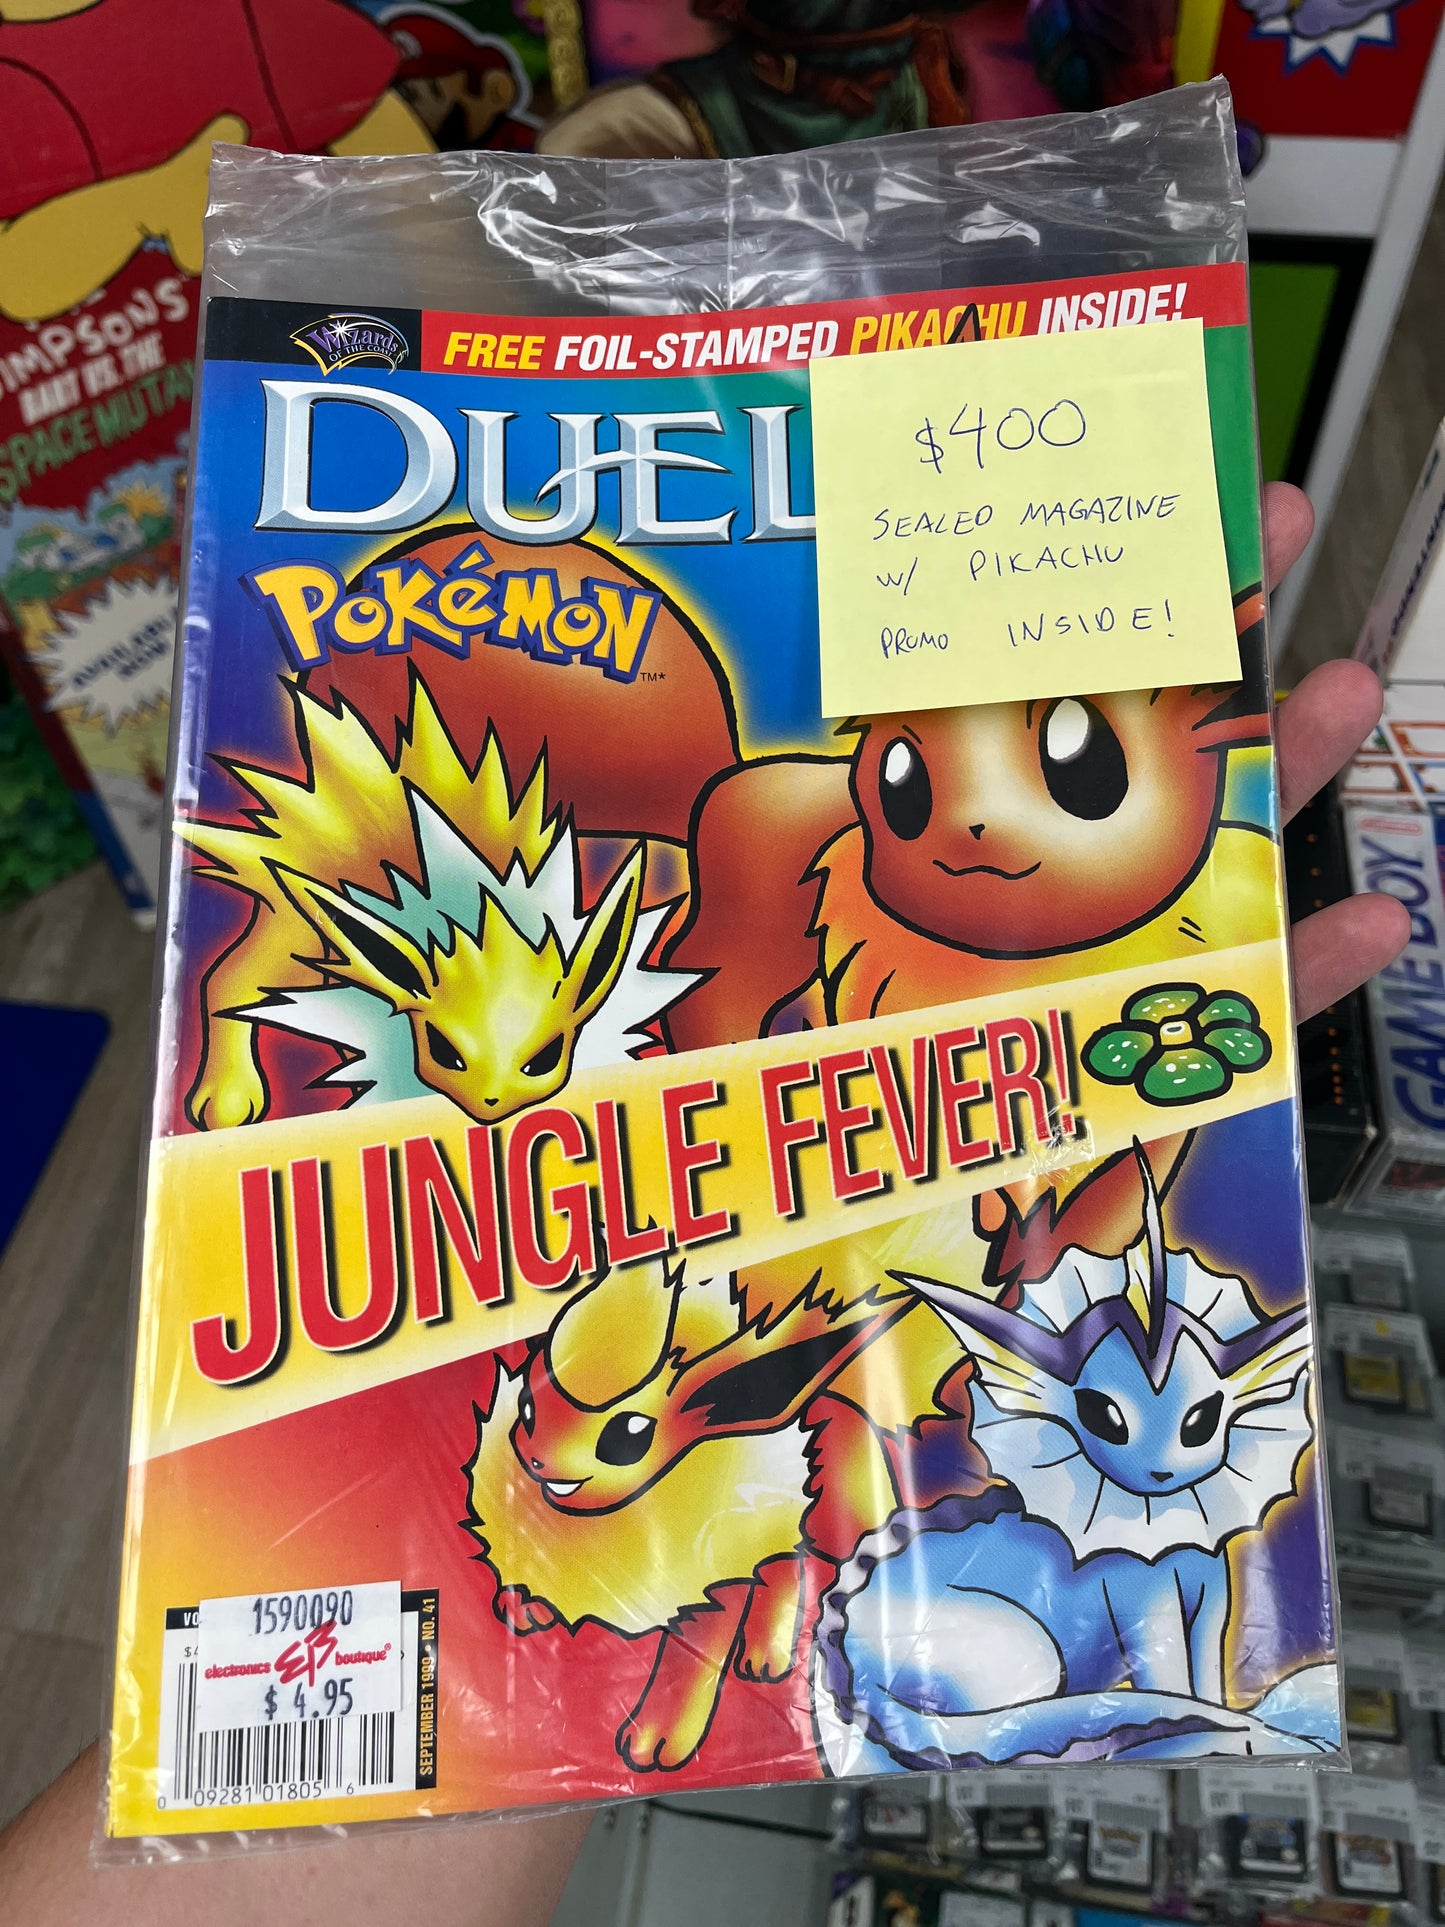 Wizards
OF THE COAST
FREE FOIL-STAMPED PIKACHU INSIDE!
DUEL
POKéMON
TM*
$400
SEALED MAGAZINE
W/ PIKACHU
PROMO INSIDE!
JUNGLE FEVER!
SIMPSONS
BART VS. THE
SPACE MUTA
GAME BOY
Nintendo
VO
1590090
electronics EB boutique
$ 4.95
SEPTEMBER 1999 • NO. 41
0 09281 01805 6